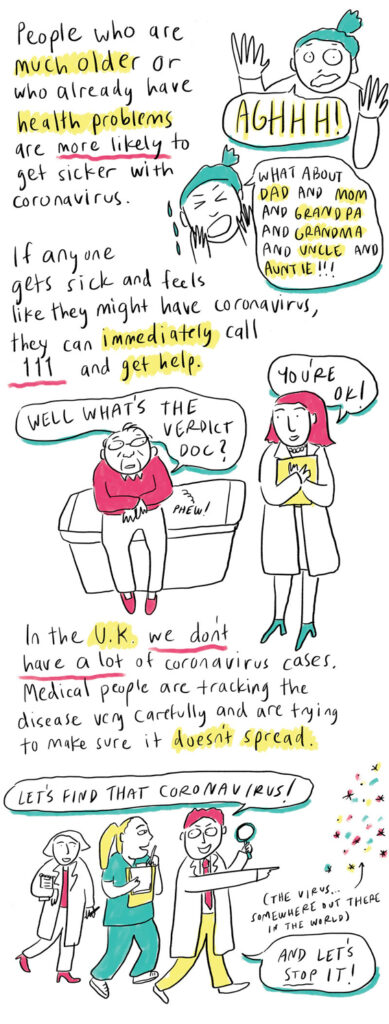 People who are
much older or
who already have
health problems
are more likely to
get sicker with
coronavirus.
AGHHH!
WHAT ABOUT
DAD AND MOM
AND GRANDPA
AND GRANDMA
AND UNCLE AND
AUNTIE!!!
If anyone
gets sick and feels
like they might have coronavirus,
they can immediately call
111 and get help.
WELL WHAT'S THE
VERDICT
DOC?
PHEW!
YOU'RE
OK!
In the U.K. we don't
have a lot of coronavirus cases.
Medical people are tracking the
disease very carefully and are trying
to make sure it doesn't spread.
LET'S FIND THAT CORONAVIRUS!
(THE VIRUS...
SOMEWHERE OUT THERE
IN THE WORLD)
AND LET'S
STOP IT!